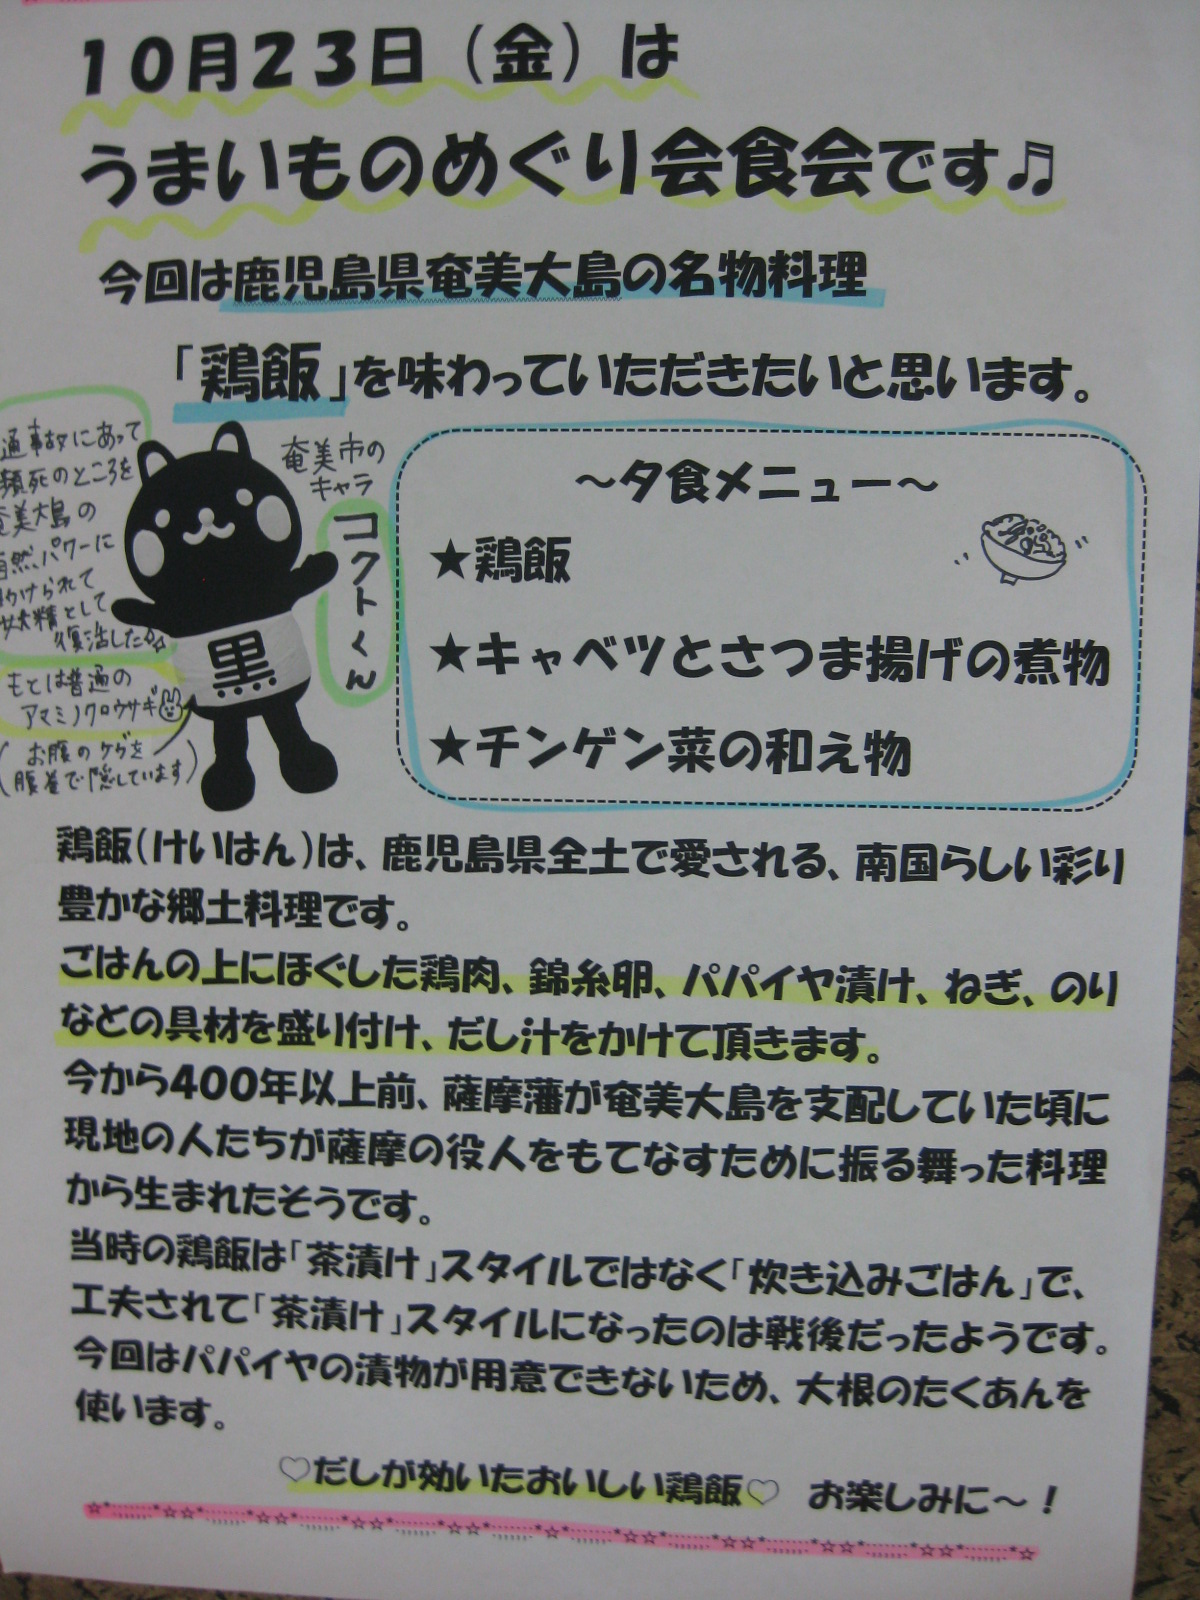 10月23日（金）は
うまいものめぐり会食会です♫
今回は鹿児島県奄美大島の名物料理
「鶏飯」を味わっていただきたいと思います。
通事故にあって
頻死のところを
奄美大島の
自然パワーに
助けられて
妖精として
復活した☆
もとは普通の
アマミノクロウサギ
(お腹のケガを
腹巻で隠しています)
奄美市の
キャラ
コクトくん
黒
～夕食メニュー～
★鶏飯
★キャベツとさつま揚げの煮物
★チンゲン菜の和え物
鶏飯(けいはん)は、鹿児島県全土で愛される、南国らしい彩り
豊かな郷土料理です。
ごはんの上にほぐした鶏肉、錦糸卵、パパイヤ漬け、ねぎ、のり
などの具材を盛り付け、だし汁をかけて頂きます。
今から400年以上前、薩摩藩が奄美大島を支配していた頃に
現地の人たちが薩摩の役人をもてなすために振る舞った料理
から生まれたそうです。
当時の鶏飯は「茶漬け」スタイルではなく「炊き込みごはん」で、
工夫されて「茶漬け」スタイルになったのは戦後だったようです。
今回はパパイヤの漬物が用意できないため、大根のたくあんを
使います。
♡だしが効いたおいしい鶏飯♡　お楽しみに～！